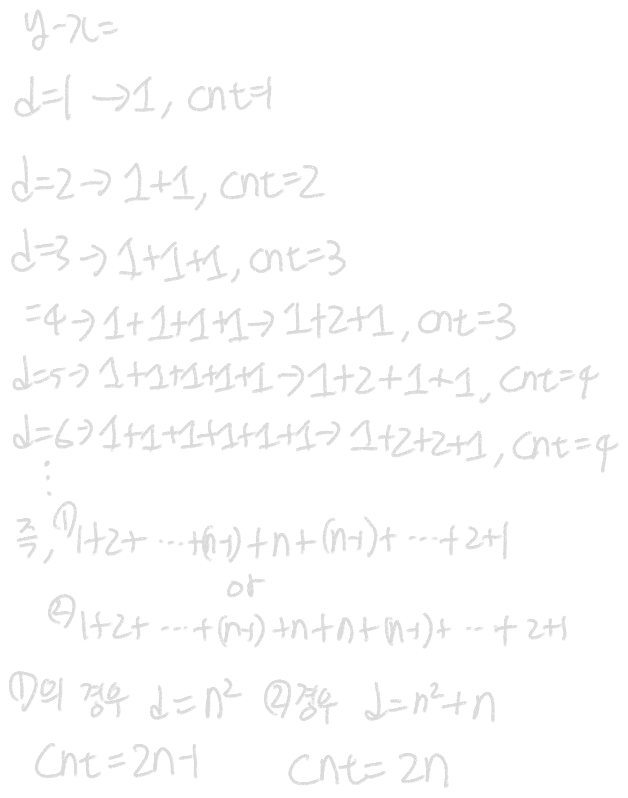 y-x=
d=1 →1, cnt=1
d=2→ 1+1, cnt=2
d=3→1+1+1, cnt=3
=4→1+1+1+1→1+2+1, cnt=3
d=5→1+1+1+1+1→1+2+1+1, cnt=4
d=6→1+1+1+1+1+1→1+2+2+1, cnt=4
⋮
즉, ①1+2+ ⋯+(n-1)+n+(n-1)+ ⋯+2+1
or
②1+2+ ⋯+(n-1)+n+n+(n-1)+ ⋯+2+1
①의 경우 d=n² ②경우 d=n²+n
cnt=2n-1 cnt=2n